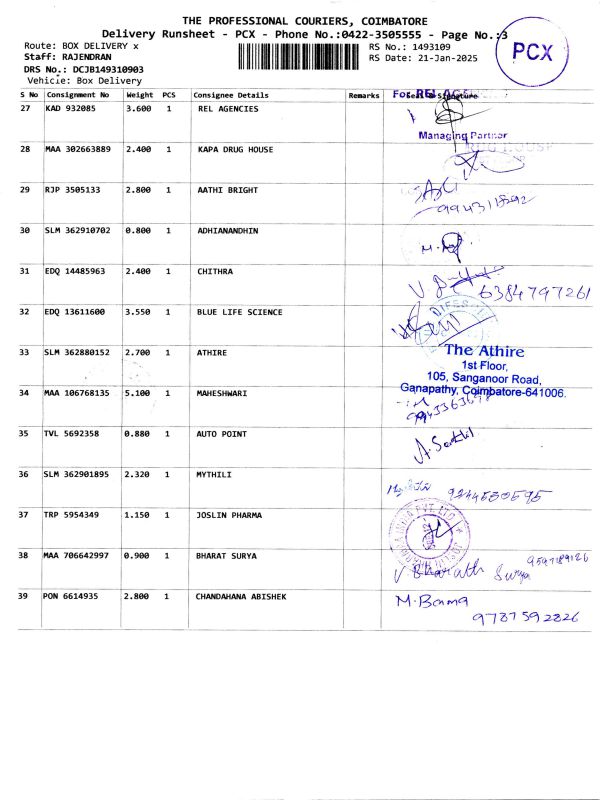 THE PROFESSIONAL COURIERS, COIMBATORE
Delivery Runsheet - PCX - Phone No.:0422-3505555 - Page No.:3
PCX
Route: BOX DELIVERY x
RS No.: 1493109
Staff: RAJENDRAN
RS Date: 21-Jan-2025
DRS No.: DCJB149310903
Vehicle: Box Delivery
S No Consignment No Weight PCS Consignee Details Remarks Seal & Signature
For REL AGENCIES
27 KAD 932085 3.600 1 REL AGENCIES
Managing Partner
28 MAA 302663889 2.400 1 KAPA DRUG HOUSE
29 RJP 3505133 2.800 1 AATHI BRIGHT
30 SLM 362910702 0.800 1 ADHIANANDHIN
31 EDQ 14485963 2.400 1 CHITHRA
6384797261
32 EDQ 13611600 3.550 1 BLUE LIFE SCIENCE
33 SLM 362880152 2.700 1 ATHIRE
The Athire
1st Floor,
105, Sanganoor Road,
Ganapathy, Coimbatore-641006.
34 MAA 106768135 5.100 1 MAHESHWARI
35 TVL 5692358 0.880 1 AUTO POINT
36 SLM 362901895 2.320 1 MYTHILI
37 TRP 5954349 1.150 1 JOSLIN PHARMA
38 MAA 706642997 0.900 1 BHARAT SURYA
V Bharath Surya
39 PON 6614935 2.800 1 CHANDAHANA ABISHEK
M. Bama
9787592826